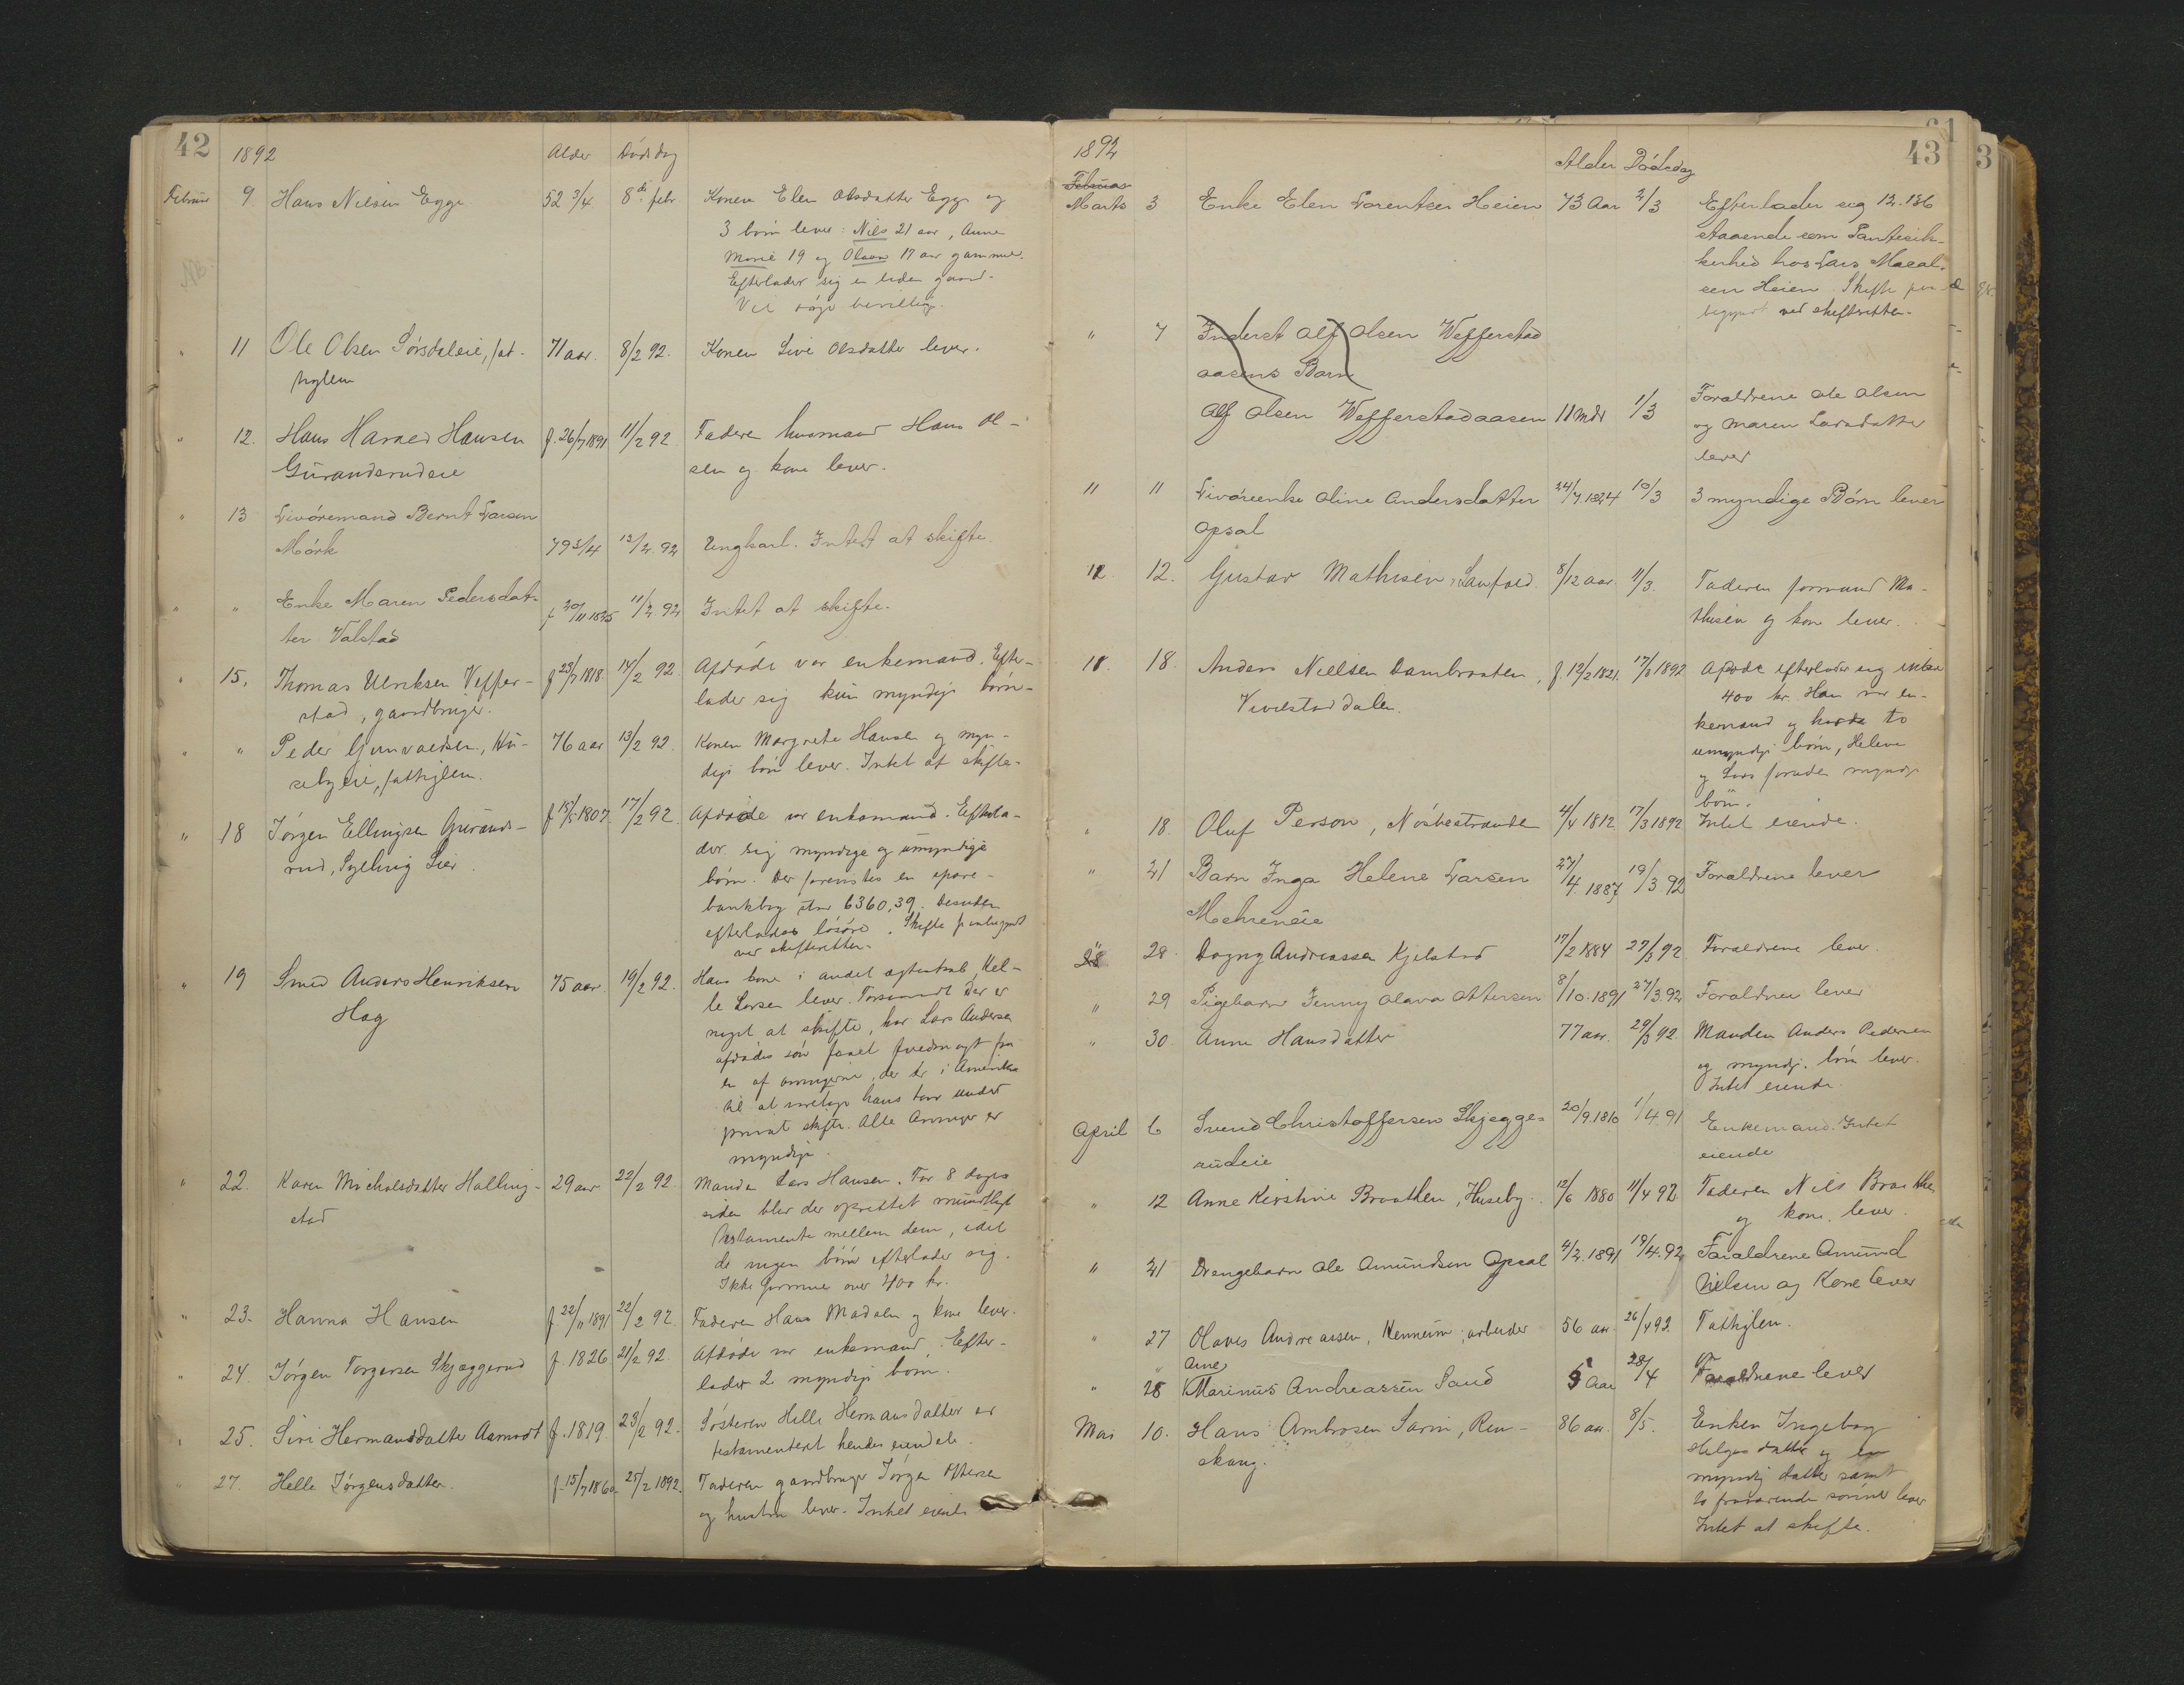 42
1892 Alder Dödsdag
Februar 9. Hans Nilsen Egge 52 3/4 8de febr Konen Elen Olsdatter Egge og
3 börn lever: Nils 21 aar, Anne
Marie 19 og Olaves 17 aar gammel.
Efterlader sig en liden gaard.
Vil söge bevilling.
" 11 Ole Olsen Sörsdaleie, fat- 71 aar. 8/2 92. Konen Live Olsdatter lever.
tiglem
" 12. Hans Harald Hansen f. 26/7 1891 11/2 92 Faderen husmand Hans Ol-
Gurandsrudeie sen og kone lever.
" 13 Livöremand Bernt Larsen
Mörk 79 3/4 13/2 92 Ungkarl. Intet at skifte.
" " Enke Maren Pedersdat- f 20/11 1825 11/2 92 Intet at skifte.
ter Valstad
" 15. Thomas Ulriksen Veffer- f 23/7 1818 14/2 92. Afdöde var enkemand. Efter-
stad, gaardbruger. lader sig kun myndige börn.
" " Peder Gunvaldsen, Hu- 76 aar 13/2 92. Konen Margrete Hansen og myn-
sebyeie, fattiglem. dige börn lever. Intet at skifte.
" 18 Jörgen Ellingsen Gurands- f 15/5 1807. 17/2 92. Afdöde var enkemand. Efterla-
rud, Sylling Lier. der sig myndige og umyndige
börn. Der forefindes en spare-
bankbog stor 6360,39. Desuden
efterlades lösöre. Skifte paabegyndt
ved skifteretten.
" 19 Smed Anders Henriksen 75 aar. 19/2 92. Hans kone i andet ægteskab, Hel-
Hag le Larsen lever. Forsaavidt der er
noget at skifte, har Lars Andersen
afdödes sön faaet fuldmagt fra
en af arvingerne, der er i Amerika
til at varetage hans tarv under
privat skifte. Alle Arvinger er
myndige.
" 22. Karen Micholsdatter Halling- 29 aar 22/2 92. Manden Lars Hansen. For 8 dage
stad siden blev der oprettet mundtligt
Testamente mellem dem, idet
de ingen börn efterlader sig.
Ikke formue over 400 kr.
" 23. Hanna Hansen f 22/11 1891 22/2 92. Faderen Hans Madsen og kone lever.
" 24. Jörgen Torgersen Skjæggerud f. 1826 21/2 92. Afdöde var enkemand. Efter-
lader 2 myndige börn.
" 25. Siri Hermansdatter Aamodt f. 1819. 23/2 92. Sösteren Helle Hermansdatter er
testamenteret hendes eiendele.
" 27. Helle Jörgensdatter. f. 15/7 1860. 25/2 1892. Faderen gaardbruger Jörgen Ottersen
og hustru lever. Intet eiende
43
1892
Alder Dödsdag
Februar
Marts 3 Enke Elen Lorentsen Heien 73 Aar 2/3 Efterlader sig 12.136
staaende som Pantesik-
kerhed hos Lars Mocal-
sen Heien. Skifte paa
begyndt ved skifteretten.
" 7 Inderst Alf Olsen Wefferstad
aasens Barn
Alf Olsen Wefferstadaasen 11 mdr 1/3 Foraldrene Ole Olsen
og Maren Larsdatter
lever
" 11 Livöreenke Oline Andersdatter 24/7 1824 10/3 3 myndige Börn lever
Opsal
12 12. Gustav Mathisen, Saufald. 8/12 aar. 11/3. Faderen formand Ma-
thisen og kone lever.
18. 18. Anders Nielsen Dambraaten, f. 12/2 1821. 17/3 1892 Afdöde efterlader sig inden
Vivelstaddalen. 400 kr. Han var en-
kemand og havde to
umyndige börn, Helene
og Lars foruden myndige
börn.
" 18. Oluf Person, Næsbestranden 4/4 1812 17/3 1892 Intet eiende.
" 21 Barn Inga Helene Larsen 27/4 1887 19/3 92 Foraldrene lever
Mehreneie
28 28. Dagny Andreassen Kjelstad 17/2 1884 27/3 92 Forældrene lever.
" 29 Pigebarn Jenny Olava Ottersen 8/10.1891 27/3.92 Foraldrene lever
" 30. Anne Hansdatter 77 aar. 29/3 92. Manden Anders Pedersen
og myndige börn lever.
Intet eiende.
April 6 Svend Christoffersen Skjægge- 20/9.1810 1/4 91 Enkemand. Intet
rudeie eiende
" 12 Anne Kirstine Braathen, Huseby. 12/6 1880 11/4 92 Faderen Nils Braathen
og kone lever.
" 21 Drengebarn Ole Amundsen Opsal 4/2.1891 19/4.92 Foraldrene Amund
Nielsen og Kone lever
" 27 Olaves Andreassen, Kennerim, arbeider 56 aar. 26/4 92. Fattiglem.
Arne
" 28 Marinius Andreassen Sand 5 Aar 28/4 Foraldrene lever
Mai 10. Hans Ambrosen Sarin, Ren- 86 aar. 8/5. Enken Ingeborg
skoug. Helgesdatter og en
myndig datter samt
to fraværende sönner lever
Intet at skifte.